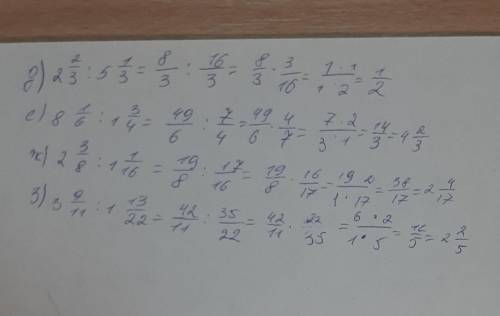 д) 2 2/3 : 5 1/3 = 8/3 : 16/3 = 8/3 · 3/16 = 1·1/1·2 = 1/2
е) 8 1/6 : 1 3/4 = 49/6 : 7/4 = 49/6 · 4/7 = 7·2/3·1 = 14/3 = 4 2/3
ж) 2 3/8 : 1 1/16 = 19/8 : 17/16 = 19/8 · 16/17 = 19 2/1·17 = 38/17 = 2 4/17
з) 3 9/11 : 1 13/22 = 42/11 : 35/22 = 42/11 · 22/35 = 6·2/1·5 = 12/5 = 2 2/5